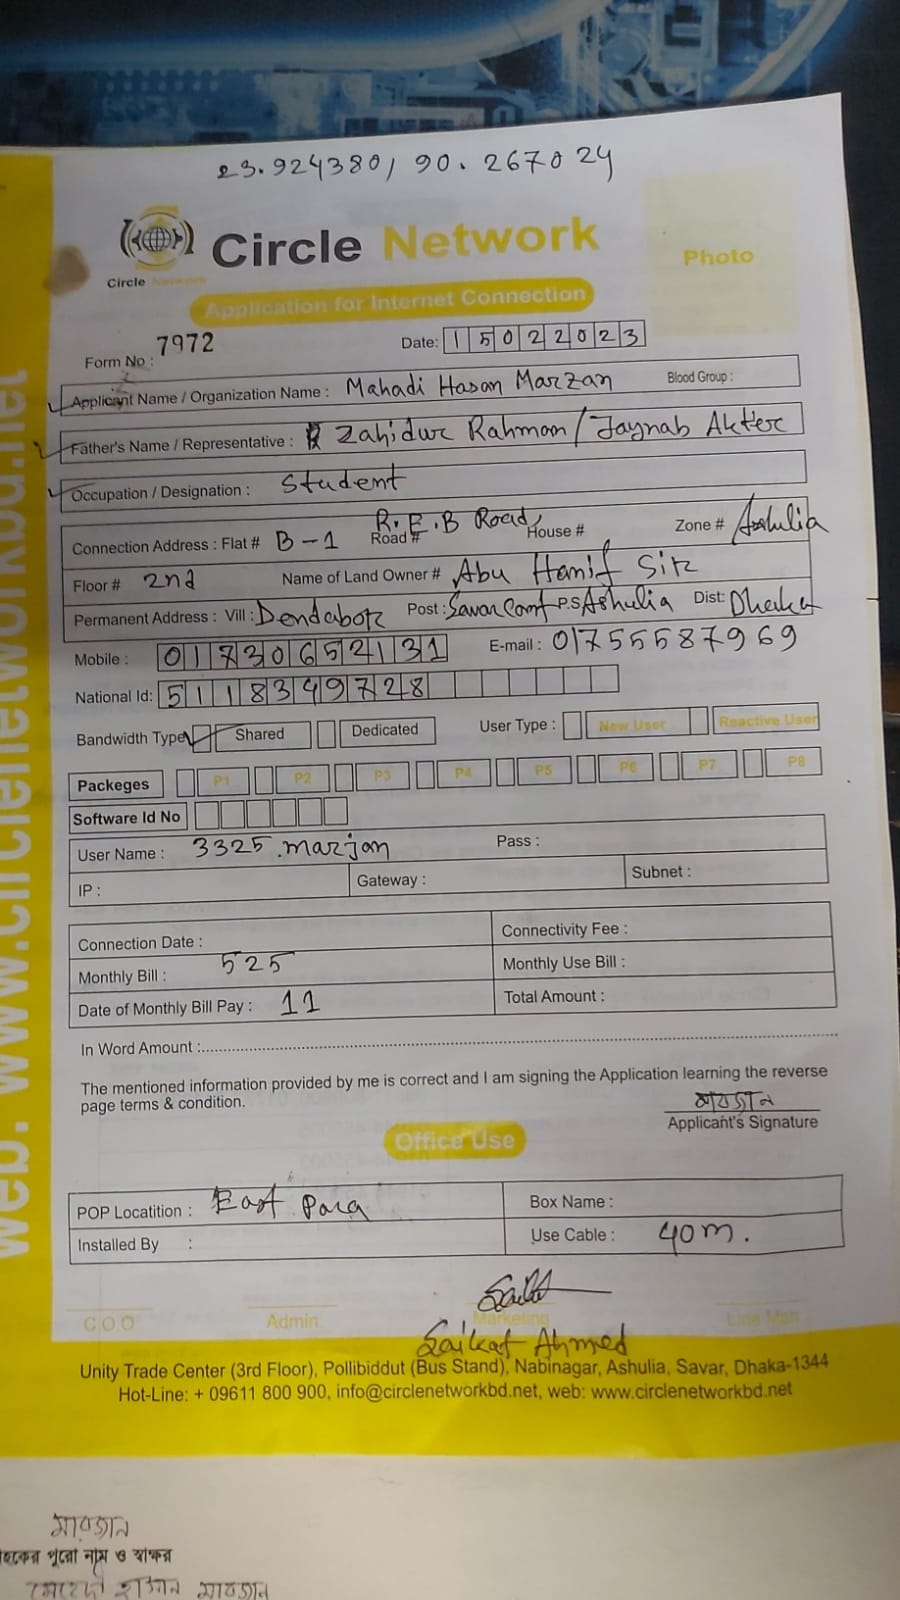 23.924380, 90.267024
Circle Network
Circle Network
Photo
Application for Internet Connection
Form No : 7972
Date: 15022023
Applicant Name / Organization Name : Mahadi Hasan Marzan Blood Group :
Father's Name / Representative : Zahidur Rahman / Jaynab Akter
Occupation / Designation : Student
Connection Address : Flat # B-1 Road # R.E.B Road, House # Zone # Ashulia
Floor # 2nd Name of Land Owner # Abu Hanif Sir
Permanent Address : Vill : Dendabor Post : Savar Cant P.S Ashulia Dist: Dhaka
Mobile : 01730652131 E-mail : 01755587969
National Id: 5118349728
Bandwidth Type Shared Dedicated User Type : New User Reactive User
Packeges P1 P2 P3 P4 P5 P6 P7 P8
Software Id No
User Name : 3325.marjan Pass :
IP : Gateway : Subnet :
Connection Date : Connectivity Fee :
Monthly Bill : 525 Monthly Use Bill :
Date of Monthly Bill Pay : 11 Total Amount :
In Word Amount :
The mentioned information provided by me is correct and I am signing the Application learning the reverse
page terms & condition.
মারজান
Applicant's Signature
Office Use
POP Locatition : East Para Box Name :
Installed By : Use Cable : 40m.
C.O.O Admin Marketing Line Man
Saikat Ahmed
Unity Trade Center (3rd Floor), Pollibiddut (Bus Stand), Nabinagar, Ashulia, Savar, Dhaka-1344
Hot-Line: + 09611 800 900, info@circlenetworkbd.net, web: www.circlenetworkbd.net
web. www.circlenetworkbd.net
মারজান
হকের পুরো নাম ও স্বাক্ষর
মেহেদী হাসান মারজান